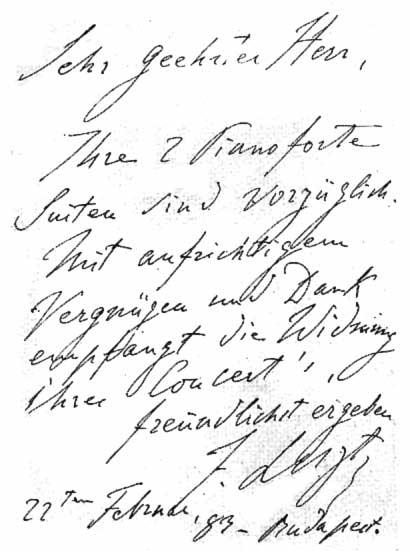 Sehr geehrter Herr,
Ihre 2 Pianoforte
Suiten sind vorzüglich.
Mit aufrichtigem
Vergnügen und Dank
empfängt die Widmung
ihres Concert's,
freundlichst ergeben
F. Liszt
22ten Februar, 83 - Budapest.